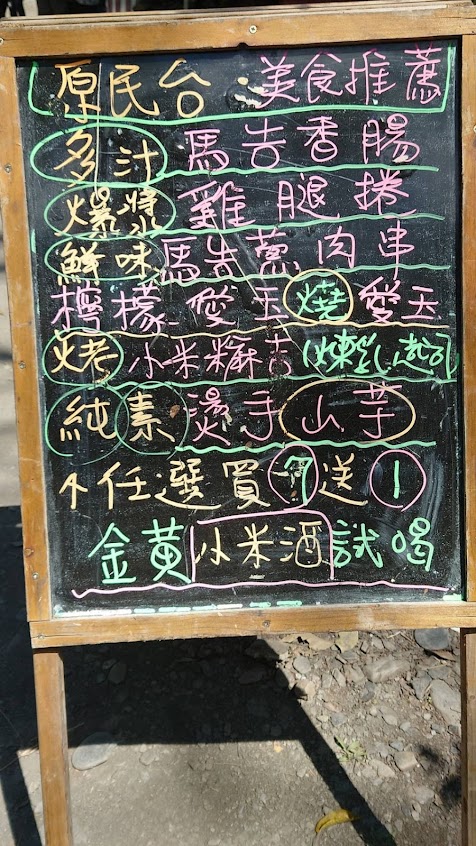 原民台 美食推薦
多汁 馬告香腸
爆漿 雞腿捲
鮮味 馬告蔥肉串
檸檬愛玉 燒愛玉
烤小米麻吉(煉乳、起司)
純素 燙手山芋
↑任選買 個送1
金黃小米酒試喝